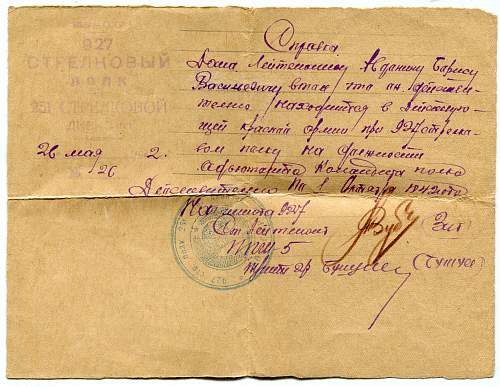 927
СТРЕЛКОВЫЙ
ПОЛК
251 СТРЕЛКОВОЙ
26 мая 2.
№ 26
Справка
Дана Лейтенанту Авданину Борису
Васильевичу в том что он действи-
тельно находится в действую-
щей красной армии при 927 стрелко-
вом полку на должности
адъютанта Командира полка
Действительно по 1 Октября 1942 года
Нач штаба 927
Ст Лейтенант
ППС - 5